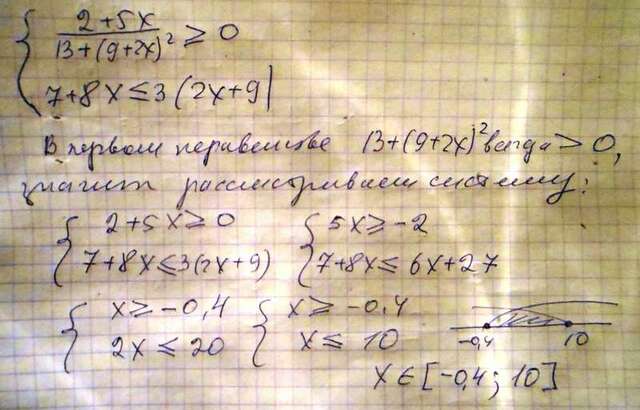 { (2+5x)/(13+(9+2x)²) ≥ 0
7+8x ≤ 3(2x+9)
В первом неравенстве 13+(9+2x)² всегда > 0,
значит рассматриваем систему:
{ 2+5x ≥ 0 { 5x ≥ -2
7+8x ≤ 3(2x+9) 7+8x ≤ 6x+27
{ x ≥ -0,4 { x ≥ -0,4
2x ≤ 20 x ≤ 10 -0,4 10
x ∈ [-0,4; 10]